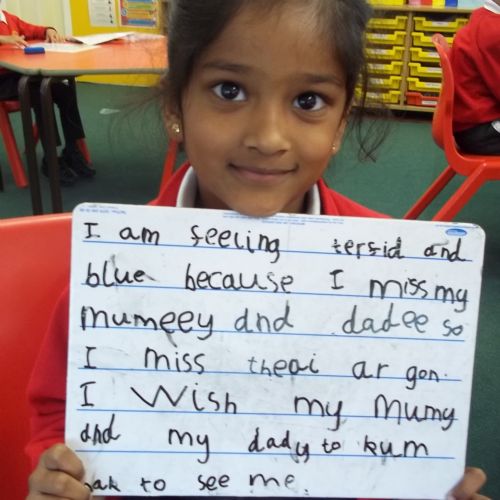 I am feeling tersid and
blue because I miss my
mumeey and dadee so
I miss theai ar gon.
I Wish my Mumy
and my dady to kum
bak to see me.